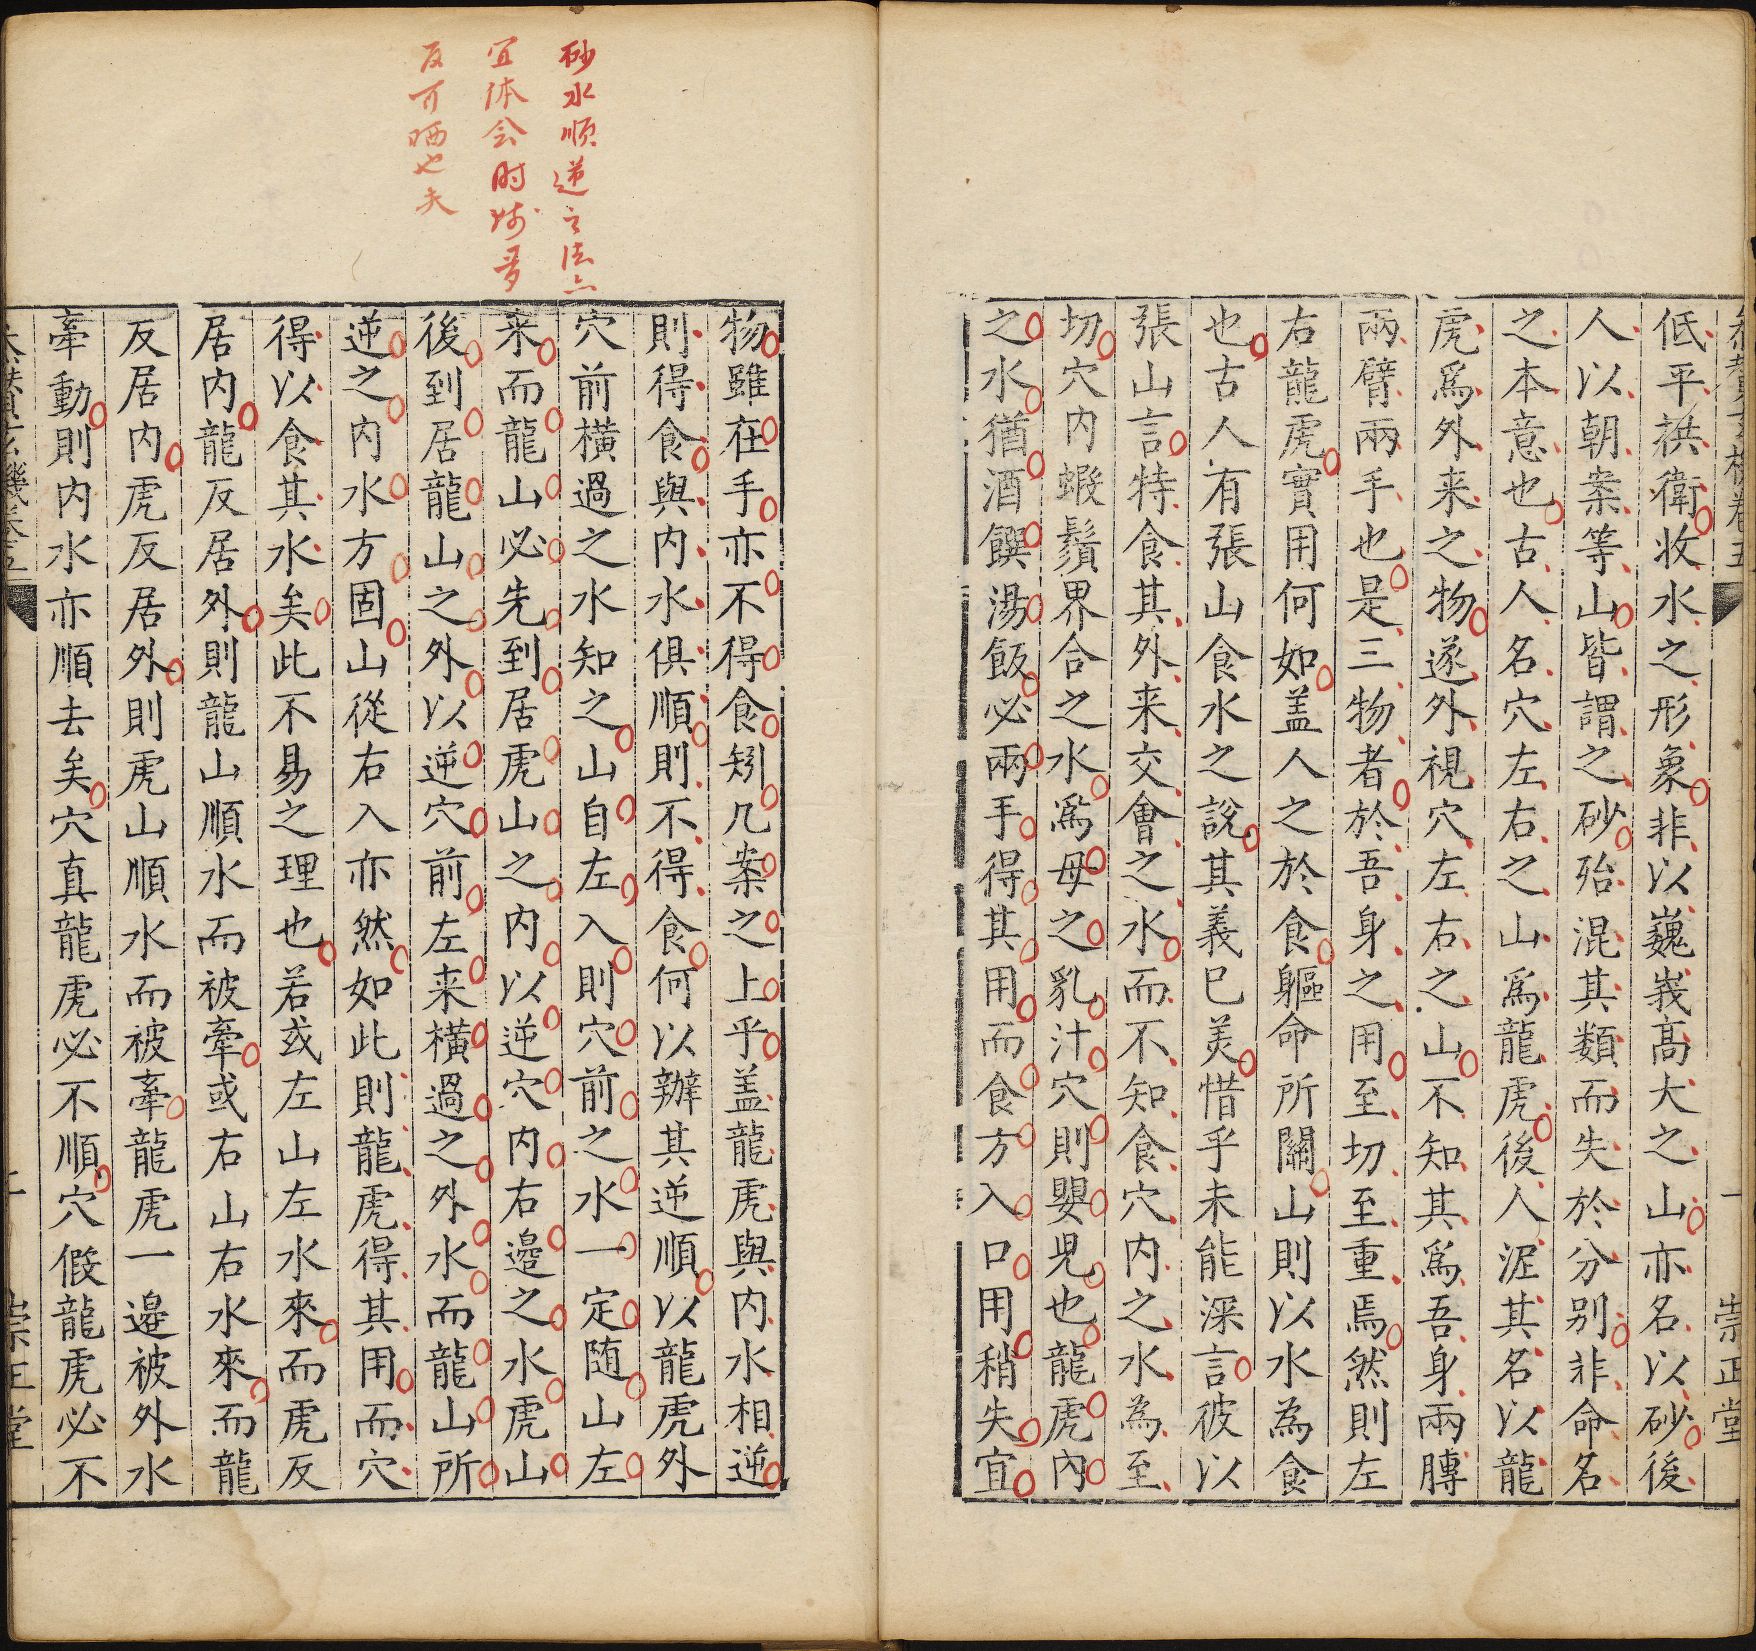 低平拱衛收水之形象非以巍峩高大之山亦名以砂後
人以朝案等山皆謂之砂殆混其類而失於分別非命名
之本意也古人名穴左右之山爲龍虎後人泥其名以龍
虎爲外来之物遂外視穴左右之山不知其爲吾身兩膊
兩臂兩手也是三物者於吾身之用至切至重焉然則左
右龍虎實用何如盖人之於食軀命所關山則以水為食
也古人有張山食水之說其義已美惜乎未能深言彼以
張山言特食其外来交會之水而不知食穴内之水為至
切穴内蝦鬚界合之水爲母之乳汁穴則嬰児也龍虎內
之水猶酒饌湯飯必兩手得其用而食方入口用稍失宜
崇正堂
砂水順逆之法
宜体会时师
反可哂也夫
物雖在手亦不得食矧几案之上乎盖龍虎與内水相逆
則得食與内水俱順則不得食何以辦其逆順以龍虎外
穴前横過之水知之山自左入則穴前之水一定随山左
来而龍山必先到居虎山之内以逆穴内右邊之水虎山
後到居龍山之外以逆穴前左来横過之外水而龍山所
逆之内水方固山從右入亦然如此則龍虎得其用而穴
得以食其水矣此不易之理也若或左山左水來而虎反
居内龍反居外則龍山順水而被牽或右山右水來而龍
反居内虎反居外則虎山順水而被牽龍虎一邉被外水
牽動則内水亦順去矣穴真龍虎必不順穴假龍虎必不
崇正堂